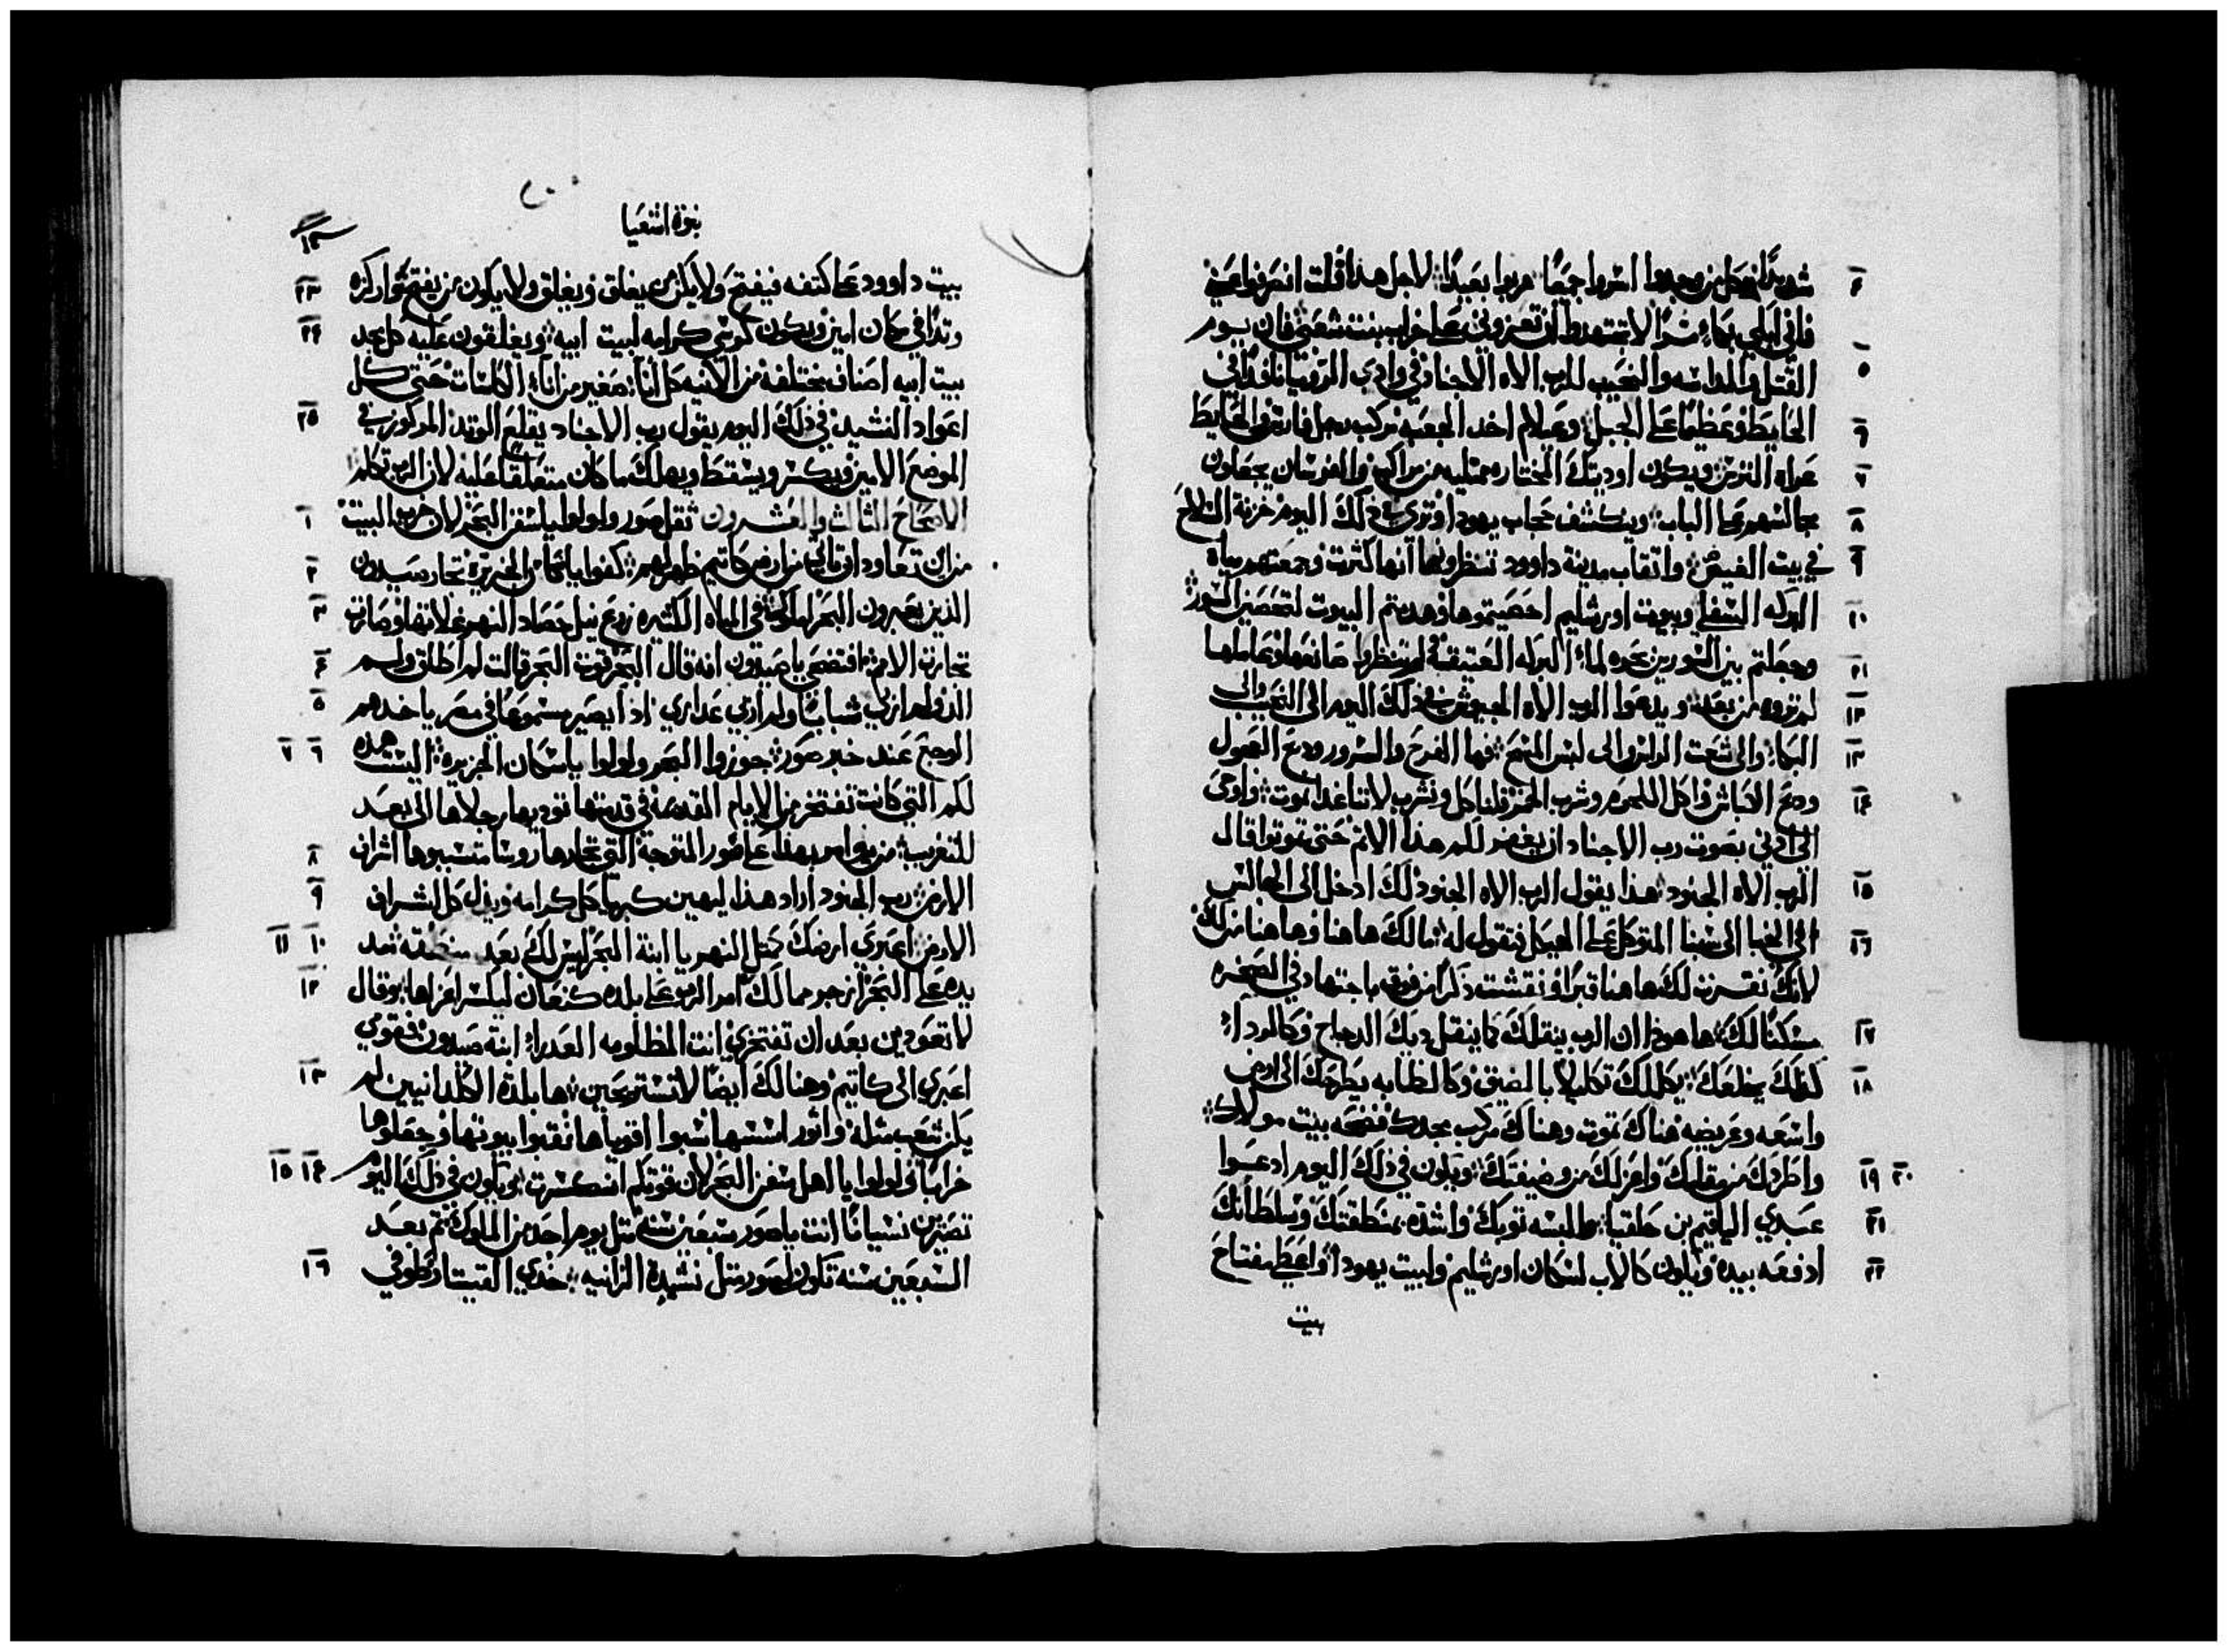 شديدًا وكل من وجدوا اسروا جميعًا هربوا بعيدًا لاجل هذا قلت انصرفوا عني ٤
فاني ابكي بكاء مرًا لا تتعمدوا ان تعزوني على خراب بنت شعبي فان يوم ٥
القتل والمداسه والنحيب للرب الاله الاجناد في وادي الرويا نافذًا في
الحايط وعظيمًا على الجبل وعيلام اخد الجعبه مركب رجل فارس والحايط ٦
عراه الترس ويكون اوديتك المختاره ممتليه من مراكب والفرسان يجعلون ٧
مجالسهم على الباب وينكشف حجاب يهودا وترى في ذلك اليوم خزنة السلاح ٨
في بيت الغيض واتقاب مدينة داوود تنظرونها انها كثرت وجمعتم مياه ٩
البركه السفلي وبيوت اورشليم احصيتموها وهدمتم البيوت لتحصين السور ١٠
وجعلتم بين السورين بحره لماء البركه العتيقة ولم تنظروا صانعها وعاملها ١١
لم تروه من بعد ويدعوا الرب الاله الجنود في ذلك اليوم الى النحيب والى ١٢
البكاء والى نتف الراس والى لبس المسح فها الفرح والسرور ودبح العجول ١٣
ودبح الكباش واكل اللحوم وشرب الخمر قلنا كل ونشرب لاننا غدا نموت واوحى ١٤
الى ادني بصوت رب الاجناد ان يغفر لكم هذا الاتم حتى تموتوا قال
الرب الاله الجنود هذا يقول الرب الاله الجنود لك ادخل الى الجالس ١٥
الى الخبا الى شبنا المتوكل على الهيكل فتقول له مالك هاهنا وهاهنا من لك ١٦
لانك نقرت لك هاهنا قبرًا ونقشت ذكرًا من فوقه باجتهاد في الصخره
مسكنًا لك هاهوذا ان الرب ينقلك كما ينقل ديك الدجاج وكالرداء ١٧
كذلك يخلعك يكللك تكليلا بالضيق وكالظابه يطرحك الى ارض ١٨
واسعه وعريضه هناك تموت وهناك مركب مجدك فضحة بيت مولاك
واطردك من مقامك واعزلك من وضيفتك ويكون في ذلك اليوم ادعوا ١٩ ٢٠
عبدي الياقيم بن حلقيا والبسه توبك واشده بمنطقتك وسلطانك ٢١
ادفعه بيده ويكون كالاب لسكان اورشليم ولبيت يهودا واعطي مفتاح ٢٢
بيت
نبوة اشعيا
بيت داوود على كتفه فيفتح ولا يكون من يغلق ويغلق ولا يكون من يفتح واركزه ٢٣
وتدًا في مكان امين ويكون كرسي كرامه لبيت ابيه ويعلقون عليه كل مجد ٢٤
بيت ابيه اصناف مختلفة من الانيه كل اناء صغير من اناء الكاسات حتى كل
اعواد النشيد في ذلك اليوم يقول رب الاجناد يقلع الوتد المركوز في ٢٥
الموضع الامين ويكسر ويسقط ويهلك ما كان متعلقا عليه لان الرب تكلم
الاصحاح الثالث والعشرون ثقل صور ولولوا يا سفن البحر لان خرب البيت ١
من ان تعاود اتيه من ارض كاتيم ظهر لهم كفوا يا سكان الجزيرة تجار صيدون ٢
الذين يعبرون البحر املوك في المياه الكتيره زرع نيل حصاد النهر غلاتها وصارت ٣
تجارة الامم افتضحي يا صيدون انه قال البحر قوت البحر قالت لم اطلق ولم ٤
الد ولم اربي شبابًا ولم اربي عداري اذا يصير مسموعًا في مصر ياخدهم ٥
الوجع عند خبر صور جوزوا البحر ولولوا يا سكان الجزيره اليست هذه ٦ ٧
لكم التي كانت تفتخر من الايام القديمة في قدمتها تودبها رجلاها الى بعد
للتغرب من هو امر بهذا على صور المتوجة التي تجارها روسا متسببوها اشراف ٨
الارض رب الجنود اراد هذا ليهين كبريا كل كرامه ويذل كل اشراف ٩
الارض اعبري ارضك كمتل النهر يا ابنة البحر ليس لك بعد منطقه مد ١٠ ١١
يده على البحر ازجر ممالك امر الرب على بلده كنعان ليكسر اعزاها وقال ١٢
لا تعودين بعد ان تفتخري انت المظلومه العدراء ابنة صيدون قومي
اعبري الى كاتيم وهنالك ايضًا لا تستريحين ها بلدة الكلدانيين لم ١٣
يكن شعب مثله واتور اسسها سبوا اقوياها نقبوا بيوتها وجعلوها
خرابًا ولولوا يا اهل سفن البحر لان قوتكم انكسرت ويكون في ذلك اليوم ١٤ ١٥
تصيرين نسيانًا انت يا صور سبعين سنه متل يوم احد من الملوك تم بعد
السبعين سنه تكون لصور متل نشيد الزانيه خدي القيتار وطوفي ١٦